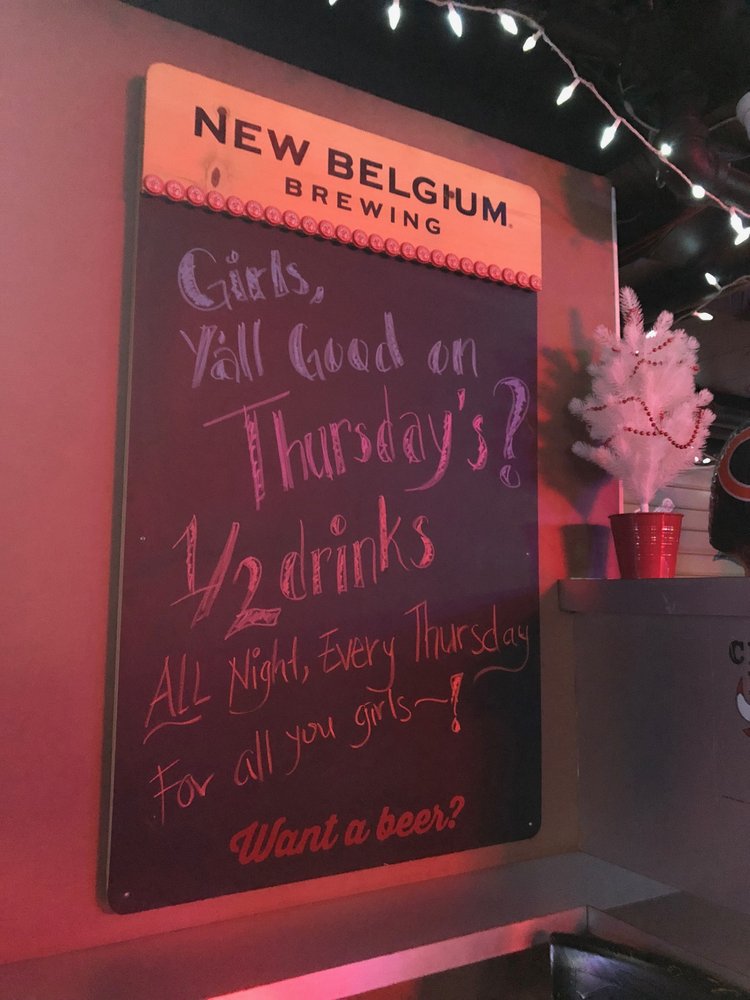 NEW BELGIUM
BREWING
Girls,
Y'all Good on
Thursday's?
1/2 drinks
ALL Night, Every Thursday
For all you girls~!
Want a beer?